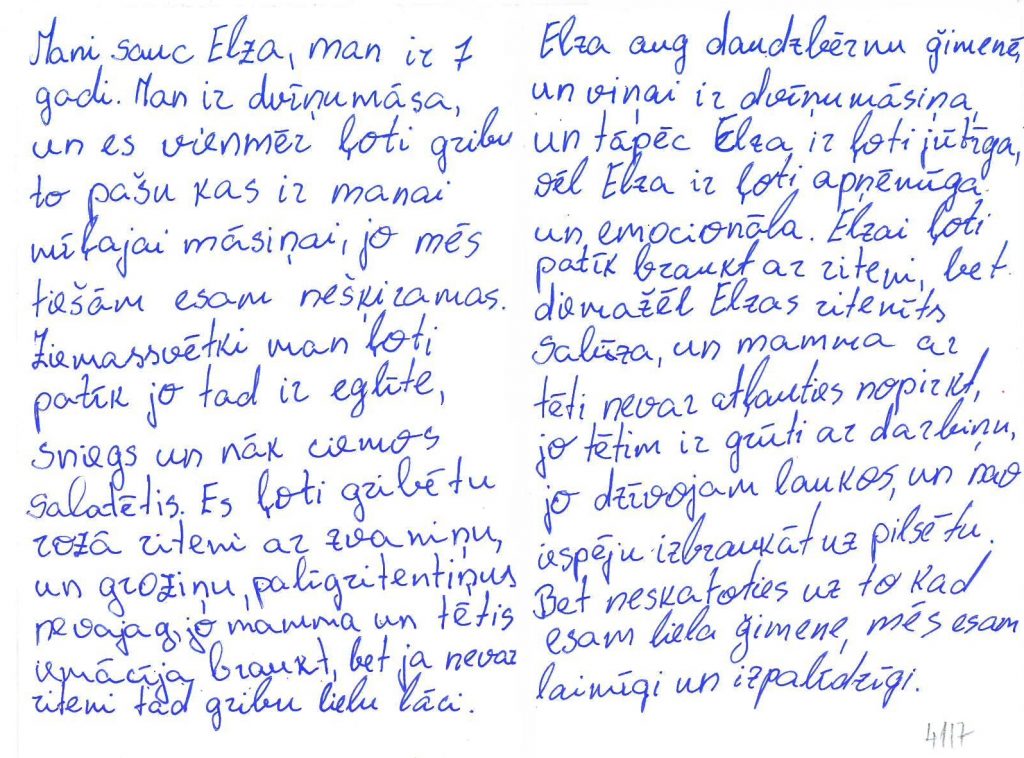 Mani sauc Elza, man ir 7
gadi. Man ir dvīņumāsa,
un es vienmēr ļoti gribu
to pašu kas ir manai
mīļajai māsiņai, jo mēs
tiešām esam nešķiramas.
Ziemassvētki man ļoti
patīk jo tad ir eglīte,
sniegs un nāk ciemos
salatētis. Es ļoti gribētu
rozā riteni ar zvaniņu,
un groziņu, palīgritentiņus
nevajag, jo mamma un tētis
iemācīja braukt, bet ja nevar
riteni tad gribu lielu lāci.
Elza aug daudzbērnu ģimenē,
un viņai ir dvīņumāsiņa,
un tāpēc Elza ir ļoti jūtīga,
vēl Elza ir ļoti apņēmīga
un emocionāla. Elzai ļoti
patīk braukt ar riteni, bet
diemažēl Elzas ritenīts
salūza, un mamma ar
tēti nevar atļauties nopirkt,
jo tētim ir grūti ar darbiņu,
jo dzīvojam laukos, un nav
iespēju izbraukāt uz pilsētu.
Bet neskatoties uz to kad
esam liela ģimene, mēs esam
laimīgi un izpalīdzīgi.
4117